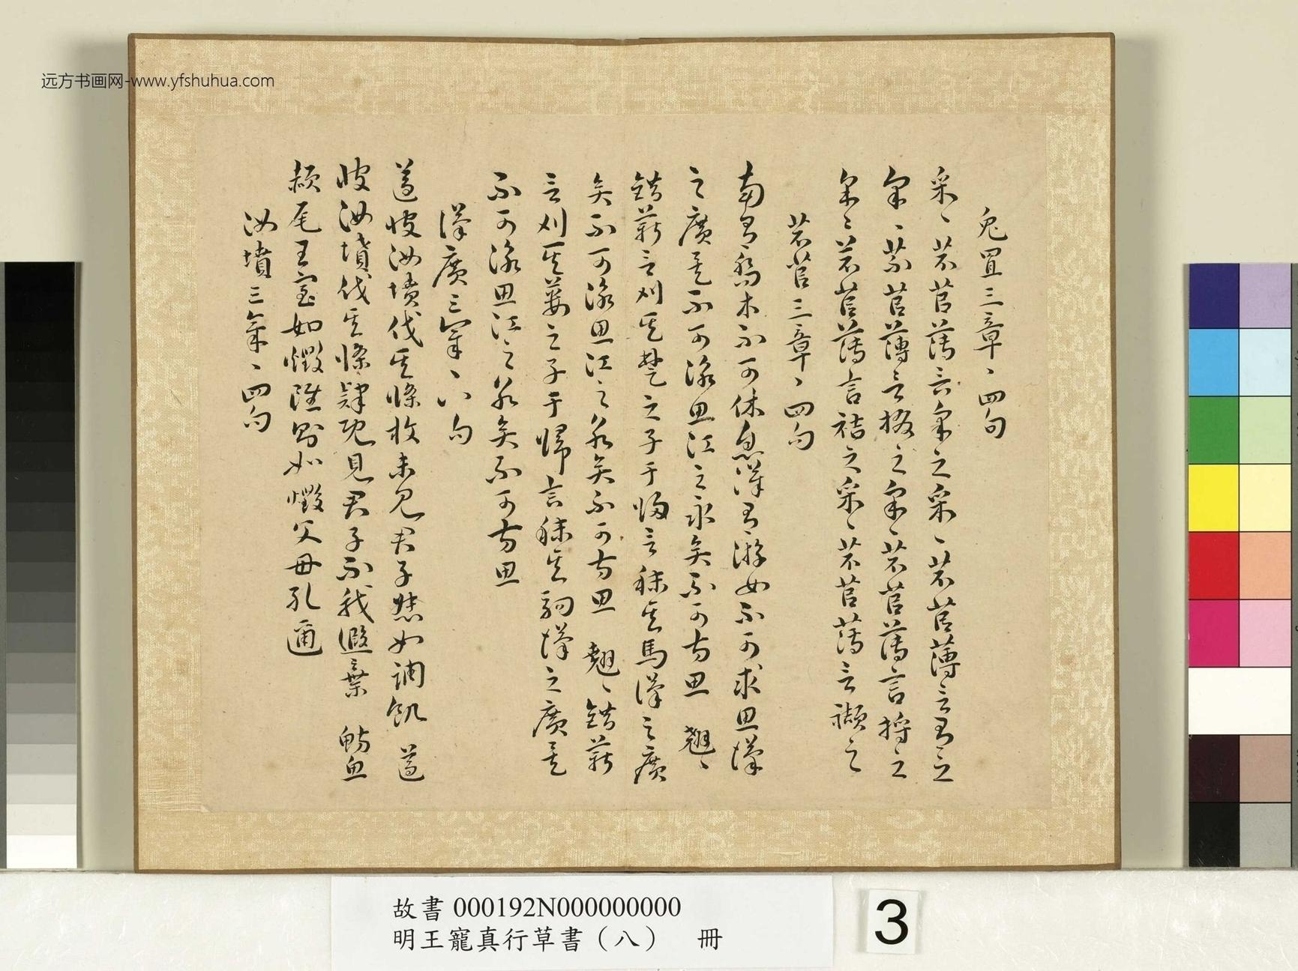 远方书画网-www.yfshuhua.com
兔罝三章、四句
采、芣苢薄言采之采、芣苢薄言有之
采、芣苢薄言掇之采、芣苢薄言捋之
采、芣苢薄言袺之采、芣苢薄言襭之
芣苢三章、四句
南有喬木不可休息漢有游女不可求思漢
之廣矣不可泳思江之永矣不可方思翹、
錯薪言刈其楚之子于歸言秣其馬漢之廣
矣不可泳思江之永矣不可方思翹、錯薪
言刈其蔞之子于歸言秣其駒漢之廣矣
不可泳思江之永矣不可方思
漢廣三章、八句
遵彼汝墳伐其條枚未見君子惄如調飢遵
彼汝墳伐其條肄既見君子不我遐棄魴魚
赬尾王室如燬雖則如燬父母孔邇
汝墳三章、四句
故書 000192N000000000
明王寵真行草書（八） 冊
3